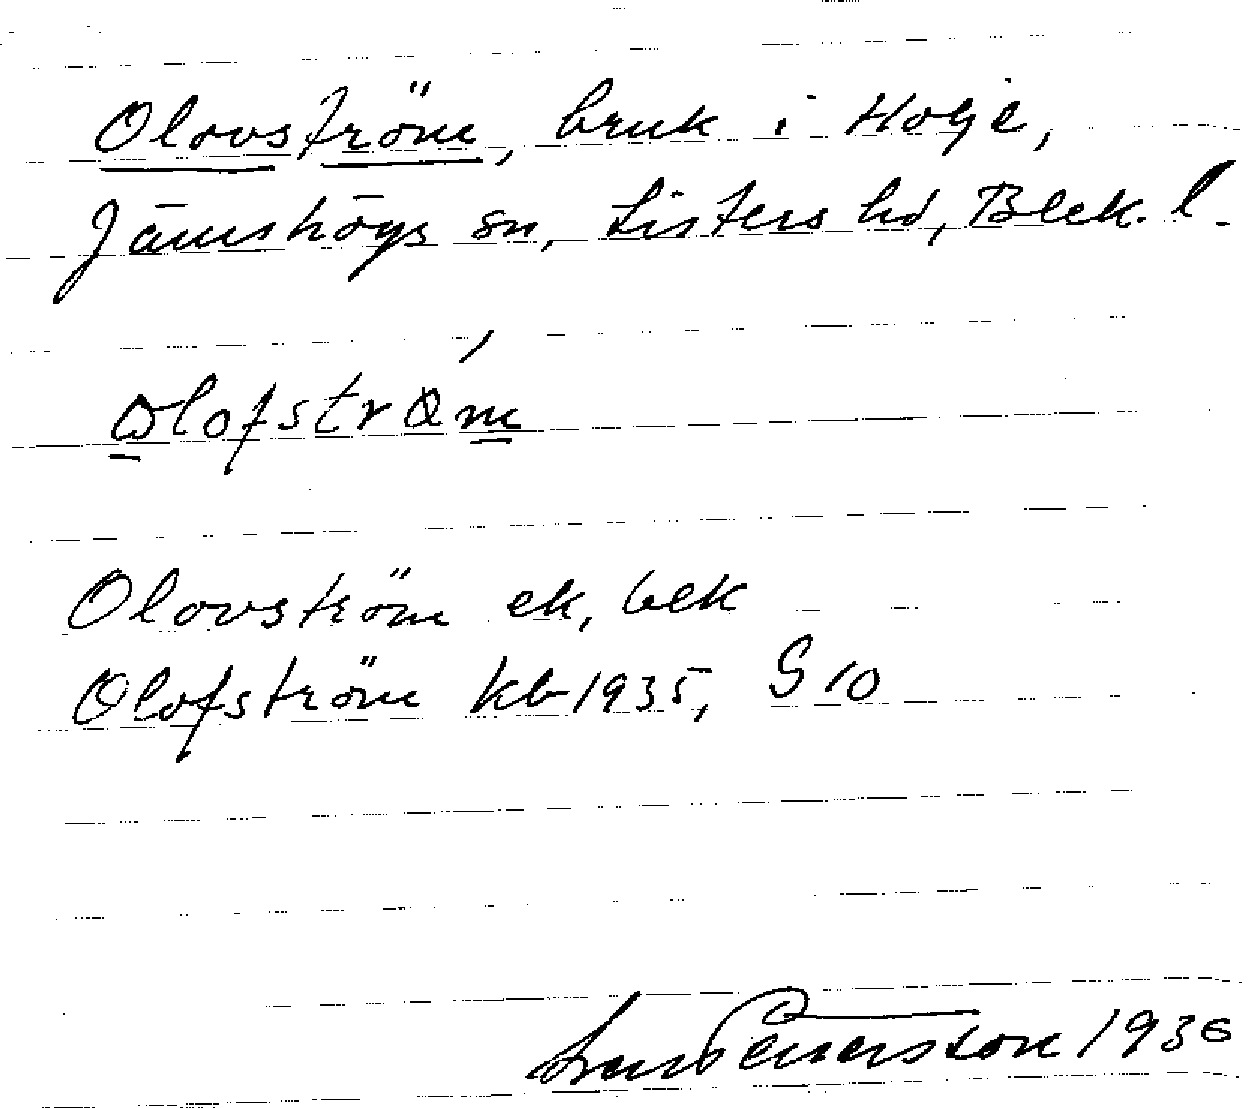 Olovström, bruk i Holje,
Jämshögs sn, Listers hd, Blek. l.
Olofstrøm
Olovström ek, bek
Olofström kb 1935, G 10
Petersson 1936